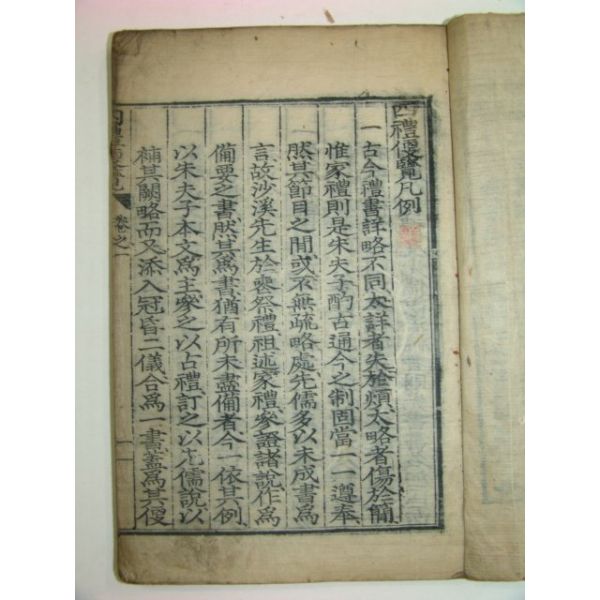 四禮便覽凡例
一古今禮書詳略不同太詳者失於煩太略者傷於簡
惟家禮則是朱夫子酌古通今之制固當一一遵奉
然其節目之間或不無疏略處先儒多以未成書爲
言故沙溪先生於喪祭禮祖述家禮參證諸說作爲
備要之書然其爲書猶有所未盡備者今一依其例
以朱夫子本文爲主參之以古禮訂之以先儒說以
補其闕略而又添入冠昏二儀合爲一書蓋爲其便
四禮便覽 卷之一